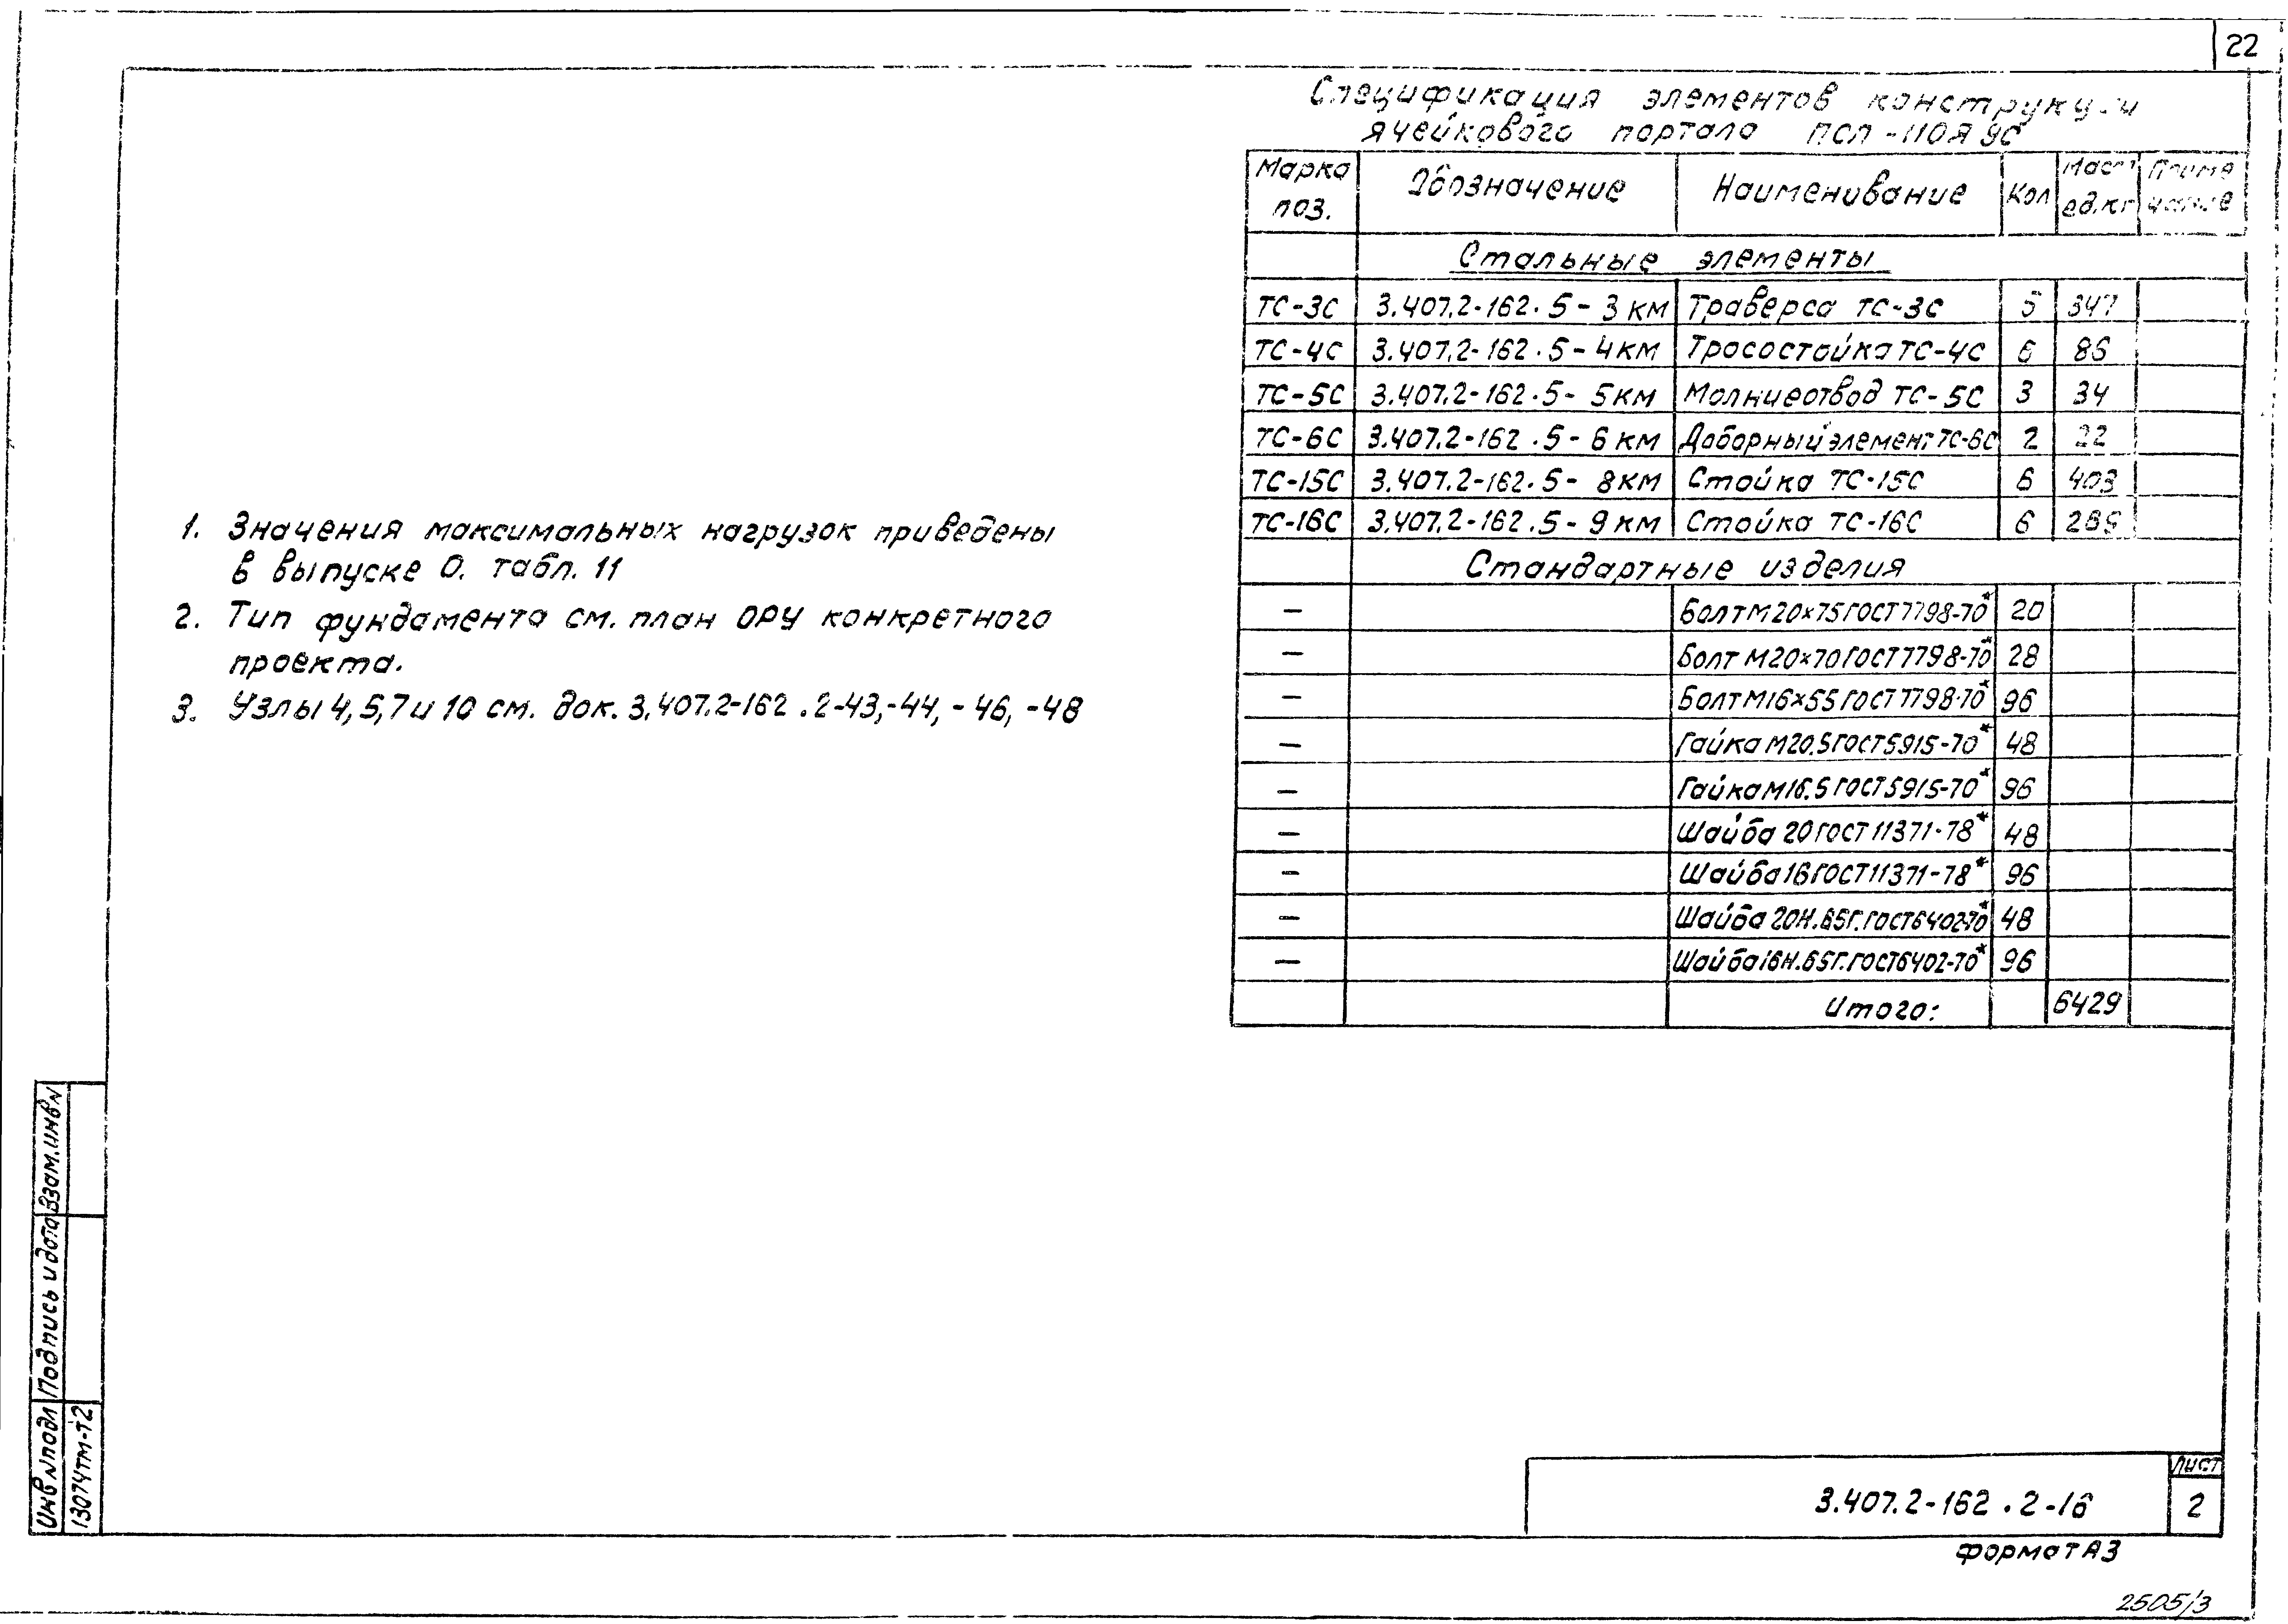 22
Спецификация элементов конструкции
ячейкового портала ПСЛ-110Я9С
Марка поз. Обозначение Наименование Кол Масса ед.кг Примечание
Стальные элементы
ТС-3С 3.407.2-162.5-3км Траверса ТС-3С 5 347
ТС-4С 3.407.2-162.5-4км Тросостойка ТС-4С 6 86
ТС-5С 3.407.2-162.5-5км Молниеотвод ТС-5С 3 34
ТС-6С 3.407.2-162.5-6км Доборный элемент ТС-6С 2 22
ТС-15С 3.407.2-162.5-8км Стойка ТС-15С 6 403
ТС-16С 3.407.2-162.5-9км Стойка ТС-16С 6
Стандартные изделия
— Болт М20×75 ГОСТ 7798-70* 20
— Болт М20×70 ГОСТ 7798-70* 28
— Болт М16×55 ГОСТ 7798-70* 96
— Гайка М20.5 ГОСТ 5915-70* 48
— Гайка М16.5 ГОСТ 5915-70* 96
— Шайба 20 ГОСТ 11371-78* 48
— Шайба 16 ГОСТ 11371-78* 96
— Шайба 20Н.65Г.ГОСТ 6402-70* 48
— Шайба 16Н.65Г.ГОСТ 6402-70* 96
Итого: 6429
1. Значения максимальных нагрузок приведены
в выпуске 0. табл. 11
2. Тип фундамента см. план ОРУ конкретного
проекта.
3. Узлы 4, 5, 7 и 10 см. док. 3.407.2-162.2-43,-44, -46, -48
Взам.инв№
Подпись и дата
Инв№подл
13074тм-т2
3.407.2-162.2-16
Лист
2
Формат А3
2505/3